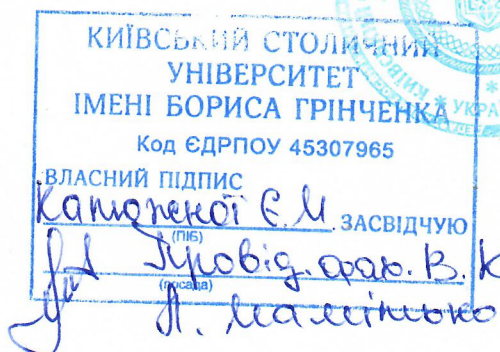 КИЇВСЬКИЙ СТОЛИЧНИЙ
УНІВЕРСИТЕТ
ІМЕНІ БОРИСА ГРІНЧЕНКА
Код ЄДРПОУ 45307965
ВЛАСНИЙ ПІДПИС
Є.М. ЗАСВІДЧУЮ
(ПІБ)
Провід. фах. В. К
(посада)
Л.